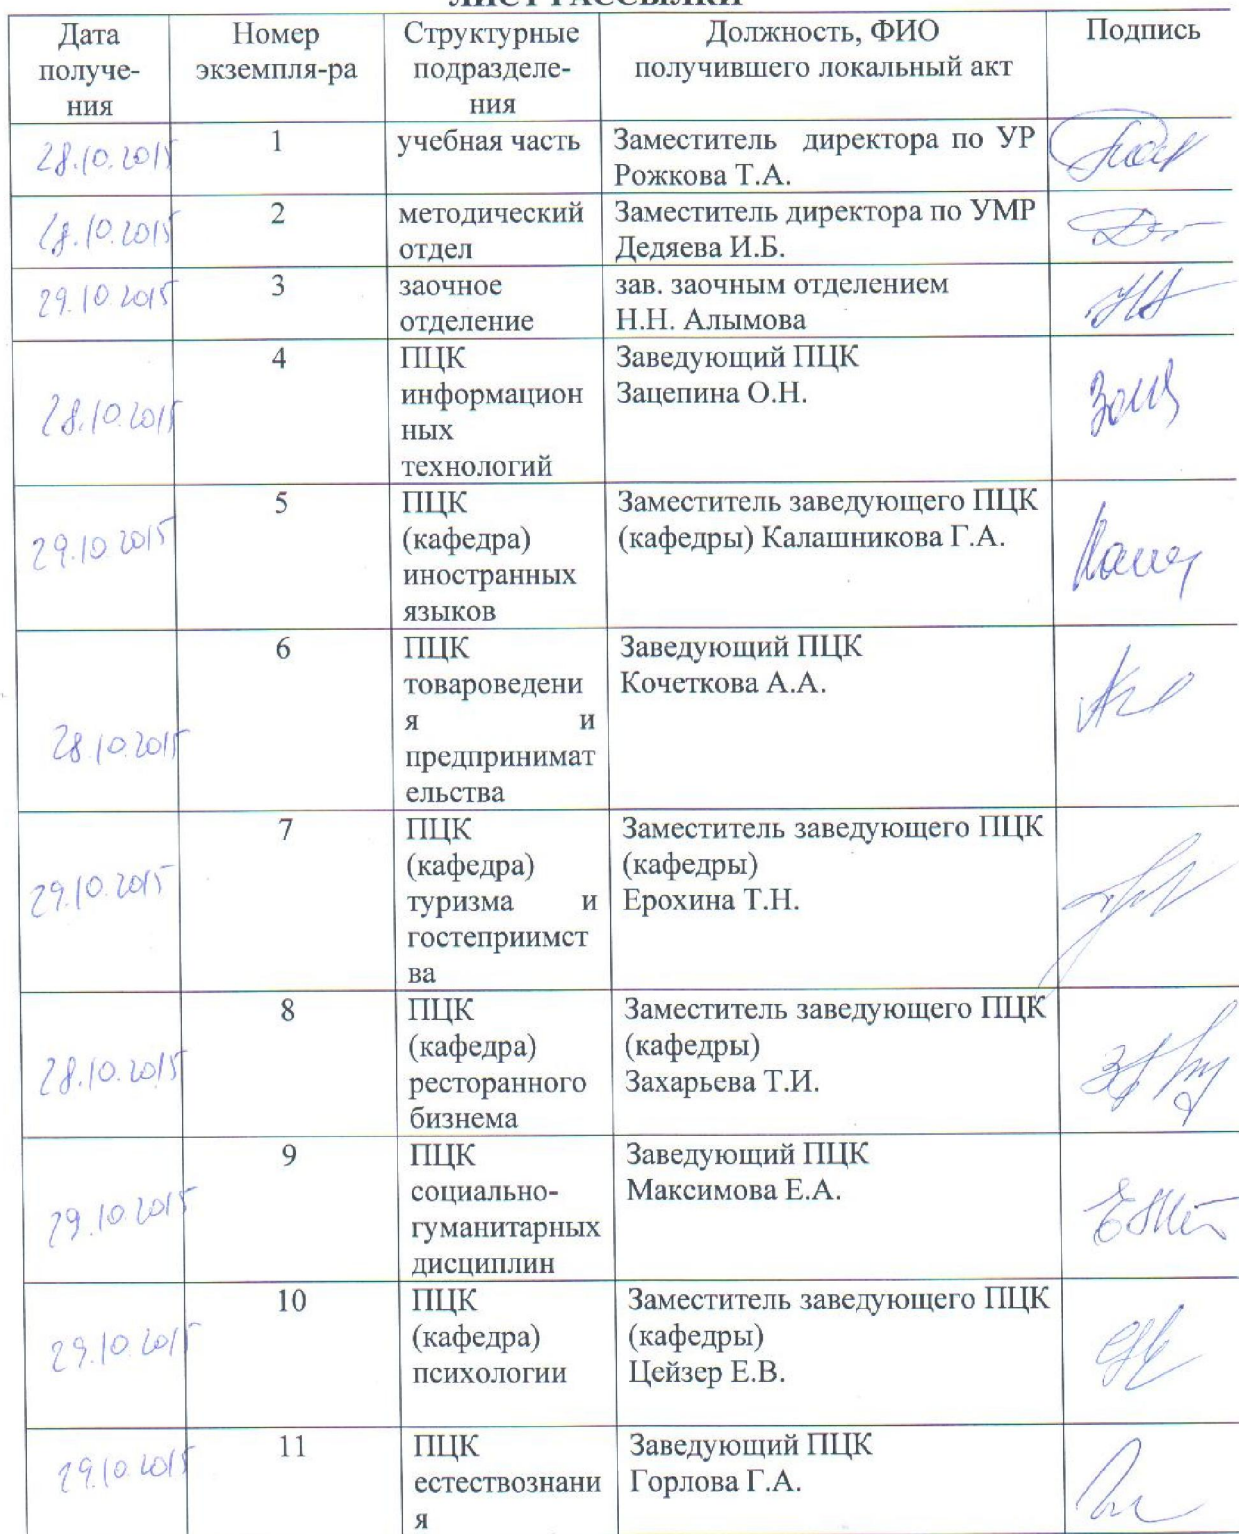 ЛИСТ РАССЫЛКИ
Дата
получе-
ния
Номер
экземпля-ра
Структурные
подразделе-
ния
Должность, ФИО
получившего локальный акт
Подпись
28.10.2015
1
учебная часть
Заместитель директора по УР
Рожкова Т.А.
28.10.2015
2
методический
отдел
Заместитель директора по УМР
Дедяева И.Б.
29.10.2015
3
заочное
отделение
зав. заочным отделением
Н.Н. Алымова
28.10.2015
4
ПЦК
информацион
ных
технологий
Заведующий ПЦК
Зацепина О.Н.
29.10 2015
5
ПЦК
(кафедра)
иностранных
языков
Заместитель заведующего ПЦК
(кафедры) Калашникова Г.А.
28.10.2015
6
ПЦК
товароведени
я и
предпринимат
ельства
Заведующий ПЦК
Кочеткова А.А.
29.10.2015
7
ПЦК
(кафедра)
туризма и
гостеприимст
ва
Заместитель заведующего ПЦК
(кафедры)
Ерохина Т.Н.
28.10.2015
8
ПЦК
(кафедра)
ресторанного
бизнема
Заместитель заведующего ПЦК
(кафедры)
Захарьева Т.И.
29.10.2015
9
ПЦК
социально-
гуманитарных
дисциплин
Заведующий ПЦК
Максимова Е.А.
29.10.2015
10
ПЦК
(кафедра)
психологии
Заместитель заведующего ПЦК
(кафедры)
Цейзер Е.В.
29.10.2015
11
ПЦК
естествознани
я
Заведующий ПЦК
Горлова Г.А.